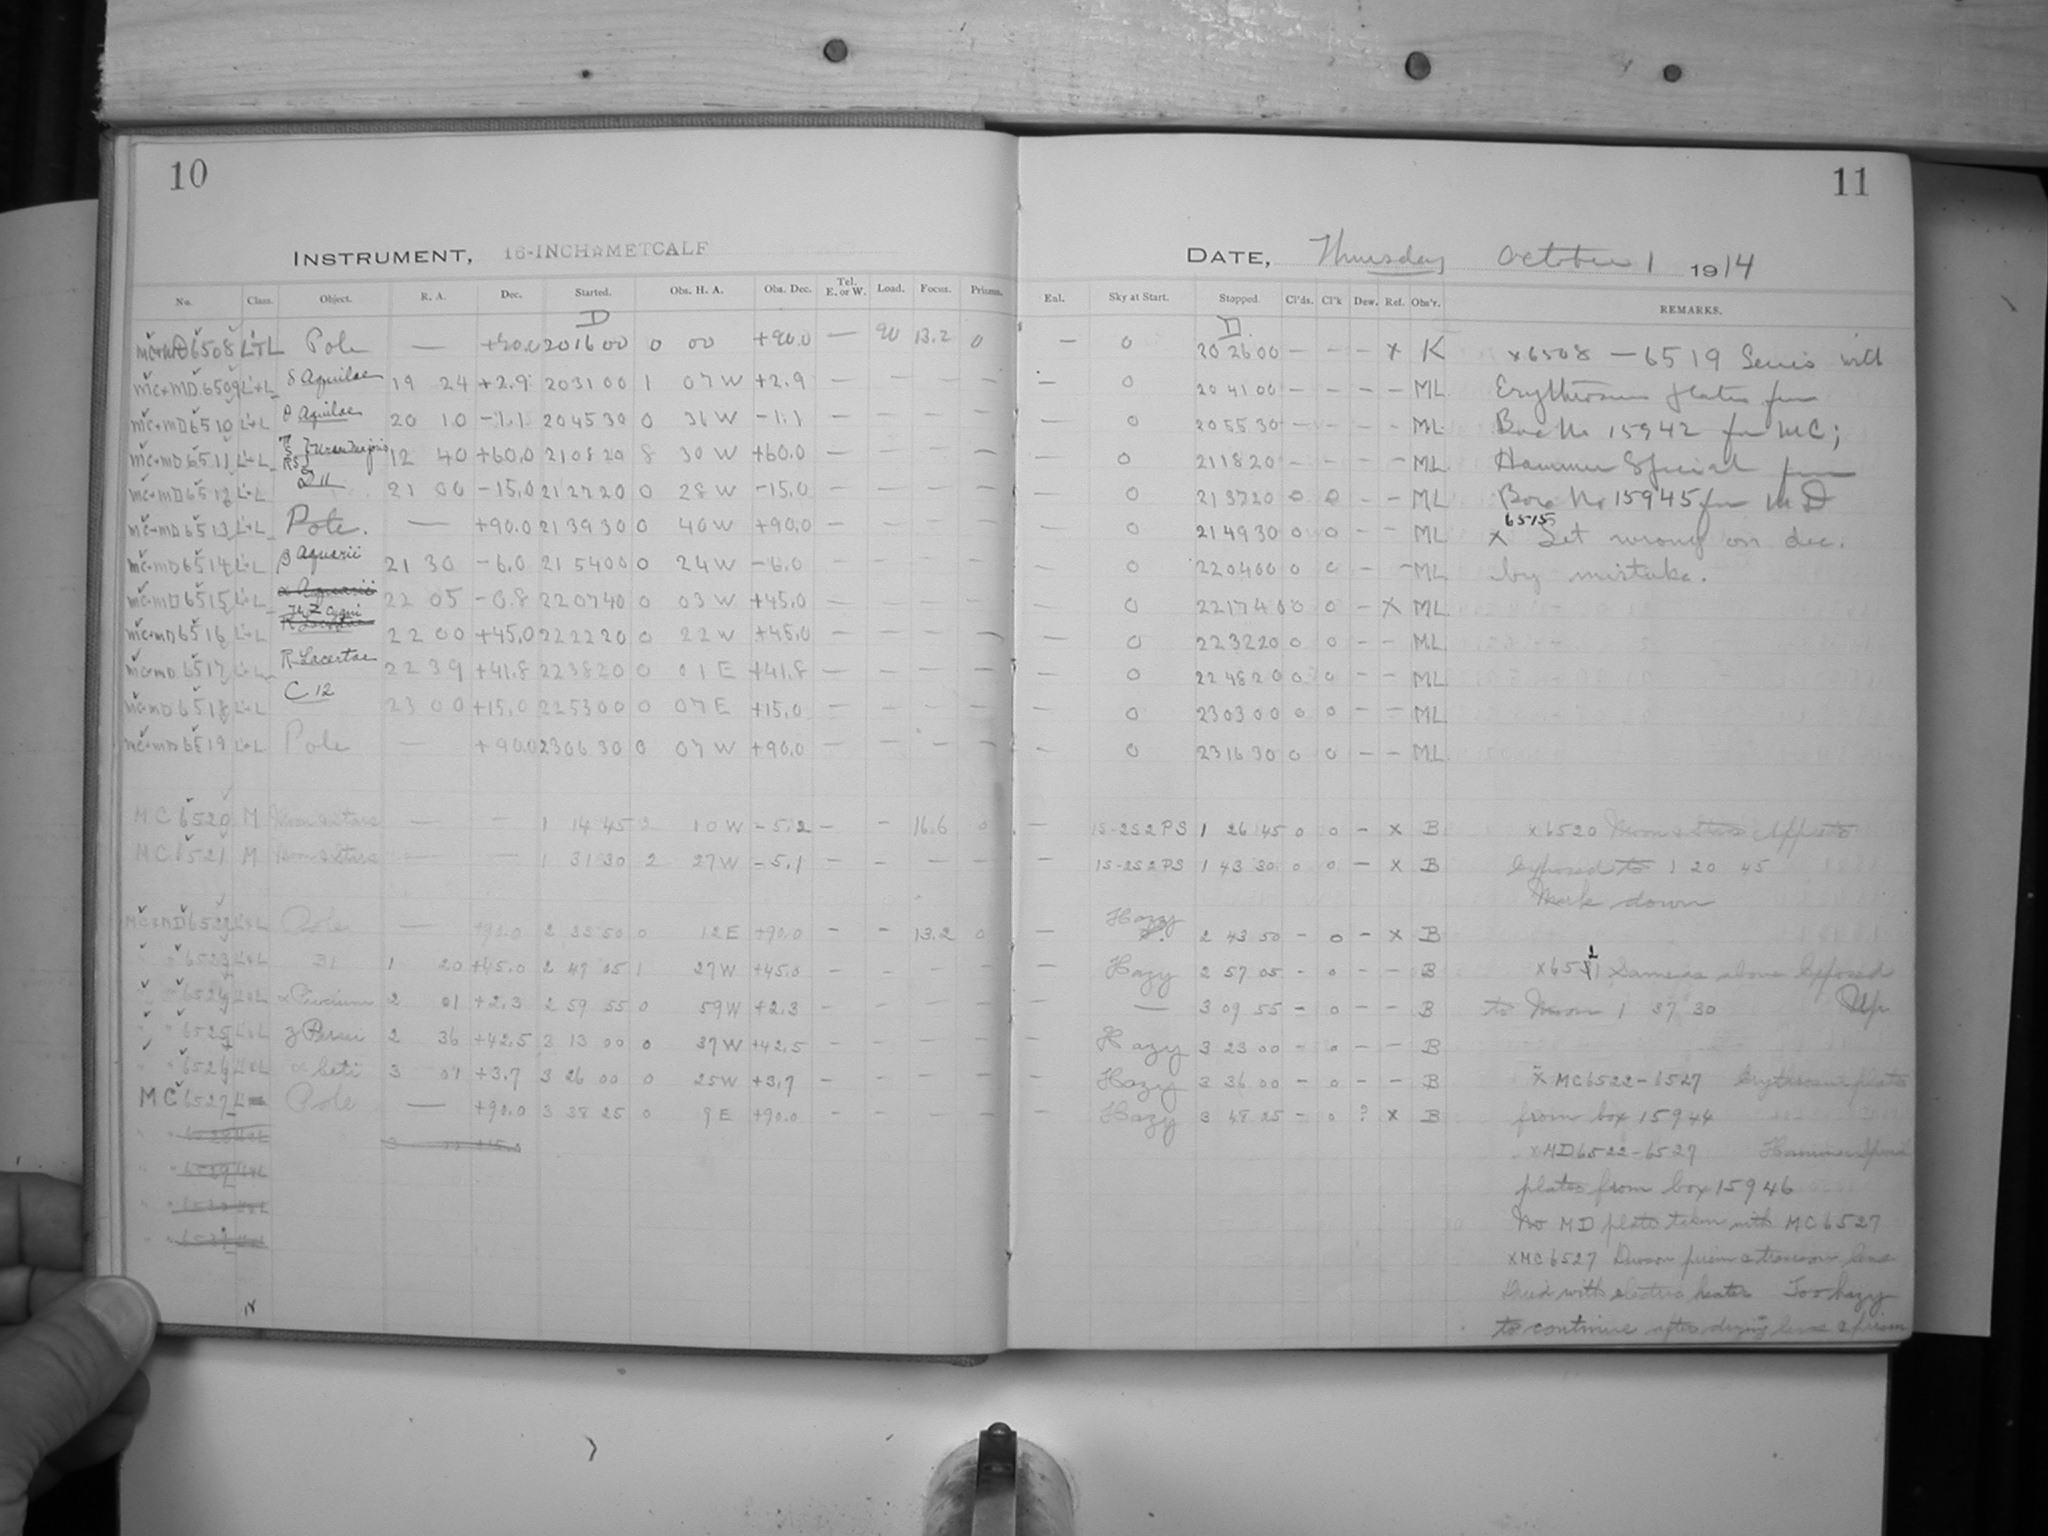 10
INSTRUMENT, 16-INCH METCALF
No. Class. Object. R. A. Dec. Started. Obs. H. A. Obs. Dec. Tel. E. or W. Load. Focus. Prisms.
D
MC+MD 6508 L+L Pole — +90.0 20 16 00 0 00 +90.0 — 90 13.2 0
MC+MD 6509 L+L δ Aquilae 19 24 +2.9 20 31 00 1 07 W +2.9 — — — —
MC+MD 6510 L+L θ Aquilae 20 10 -1.1 20 45 30 0 36 W -1.1 — — — —
MC+MD 6511 L+L 12 40 +60.0 21 08 20 8 30 W +60.0 — — — —
MC+MD 6512 L+L D 11 21 00 -15.0 21 27 20 0 28 W -15.0 — — — —
MC+MD 6513 L+L Pole. — +90.0 21 39 30 0 40 W +90.0 — — — —
MC+MD 6514 L+L β Aquarii 21 30 -6.0 21 54 00 0 24 W -6.0 — — — —
MC+MD 6515 L+L α Aquarii 22 05 -0.8 22 07 40 0 03 W +45.0 — — — —
MC+MD 6516 L+L 22 00 +45.0 22 22 20 0 22 W +45.0 — — — —
MC+MD 6517 L+L R Lacertae 22 39 +41.8 22 38 20 0 01 E +41.8 — — — —
MC+MD 6518 L+L C 12 23 00 +15.0 22 53 00 0 07 E +15.0 — — — —
MC+MD 6519 L+L Pole — +90.0 23 06 30 0 07 W +90.0 — — — —
MC 6520 M Moon & Stars — — 1 14 45 2 10 W -5.2 — — 16.6 0
MC 6521 M Moon & Stars — — 1 31 30 2 27 W -5.1 — — — —
MC & MD 6522 L&L Pole — +90.0 2 33 50 0 12 E +90.0 — — 13.2 0
" " 6523 L&L B1 1 20 +45.0 2 47 05 1 27 W +45.0 — — — —
" " 6524 L&L α Piscium 2 01 +2.3 2 59 55 0 59 W +2.3 — — — —
" " 6525 L&L Persei 2 36 +42.5 3 13 00 0 37 W +42.5 — — — —
" " 6526 L&L α Ceti 3 01 +3.7 3 26 00 0 25 W +3.7 — — — —
MC 6527 L Pole — +90.0 3 38 25 0 9 E +90.0 — — — —
" " 6528 L&L
" " 6529 L&L
" " 6530 L&L
" " 6531 L&L
11
DATE, Thursday October 1 1914
Ent. Sky at Start. Stopped. Cl'ds. Cl'k Dew. Ref. Obs'r. REMARKS.
D.
— 0 20 26 00 — — — x K x6508 — 6519 Series with
— 0 20 41 00 — — — — ML Erythrosin plates from
— 0 20 55 30 — — — — ML Box No 15942 for MC;
— 0 21 18 20 — — — — ML Hammer Special from
— 0 21 37 20 0 0 — — ML Box No 15945 for MD
— 0 21 49 30 0 0 — — ML x 6515 Set wrong on dec.
— 0 22 04 00 0 0 — — ML by mistake.
— 0 22 17 40 0 0 — X ML
— 0 22 32 20 0 0 — — ML
— 0 22 48 20 0 0 — — ML
— 0 23 03 00 0 0 — — ML
— 0 23 16 30 0 0 — — ML
— 1S-2S2PS 1 26 45 0 0 — x B x6520 Moon & Stars
— 1S-2S2PS 1 43 30 0 0 — x B Exposed to 1 20 45
Mark down
— Hazy 2 43 50 — 0 — x B
— Hazy 2 57 05 — 0 — — B x6521 Same as above Exposed
— — 3 09 55 — 0 — — B to Moon 1 37 30 Up
— Hazy 3 23 00 — 0 — — B
— Hazy 3 36 00 — 0 — — B x MC6522-6527 Erythrosin plates
— Hazy 3 48 25 — 0 ? x B from box 15944
x MD6522-6527 Hammer Special
plates from box 15946
No MD plate taken with MC6527
x MC6527 Dew on prism & lens
Dried with electric heater Too hazy
to continue after drying lens & prism